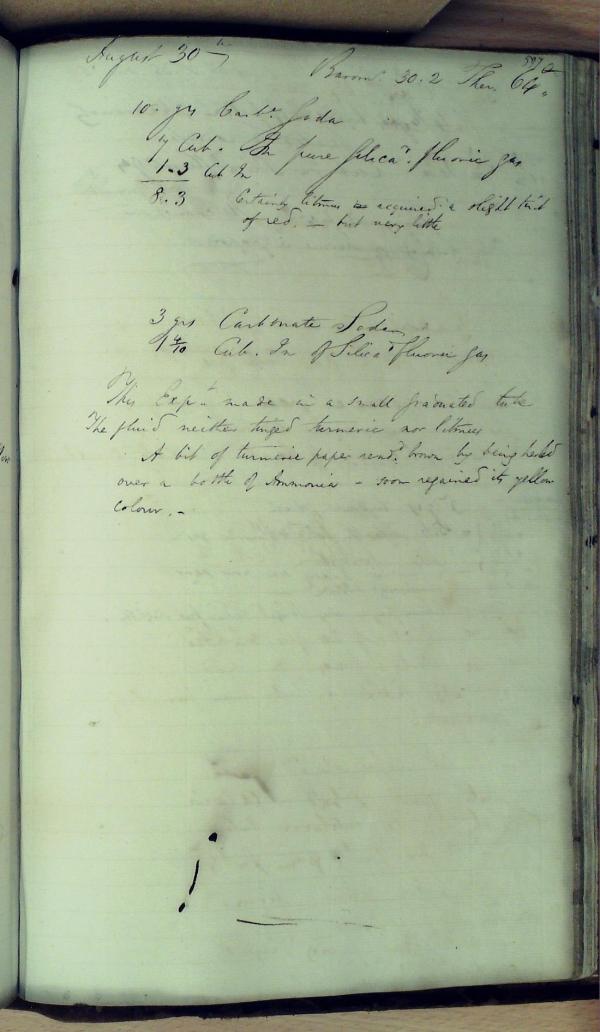 August 30th
Barom. 30.2 Ther. 64°
10 grs Carbe. Soda
7 Cub. In pure Silicad. fluoric gas
1.3 Cub In
8.3 Certainly litmus is acquired a slight tint
of red. — but very little
3 grs Carbonate Soda
1 4/10 Cub. In of Silicad fluoric gas
This Expt. made in a small graduated tube
The fluid neither tinged turmeric nor litmus
A bit of turmeric paper rendd. brown by being held
over a bottle of Ammonia – soon regained its yellow
colour. –